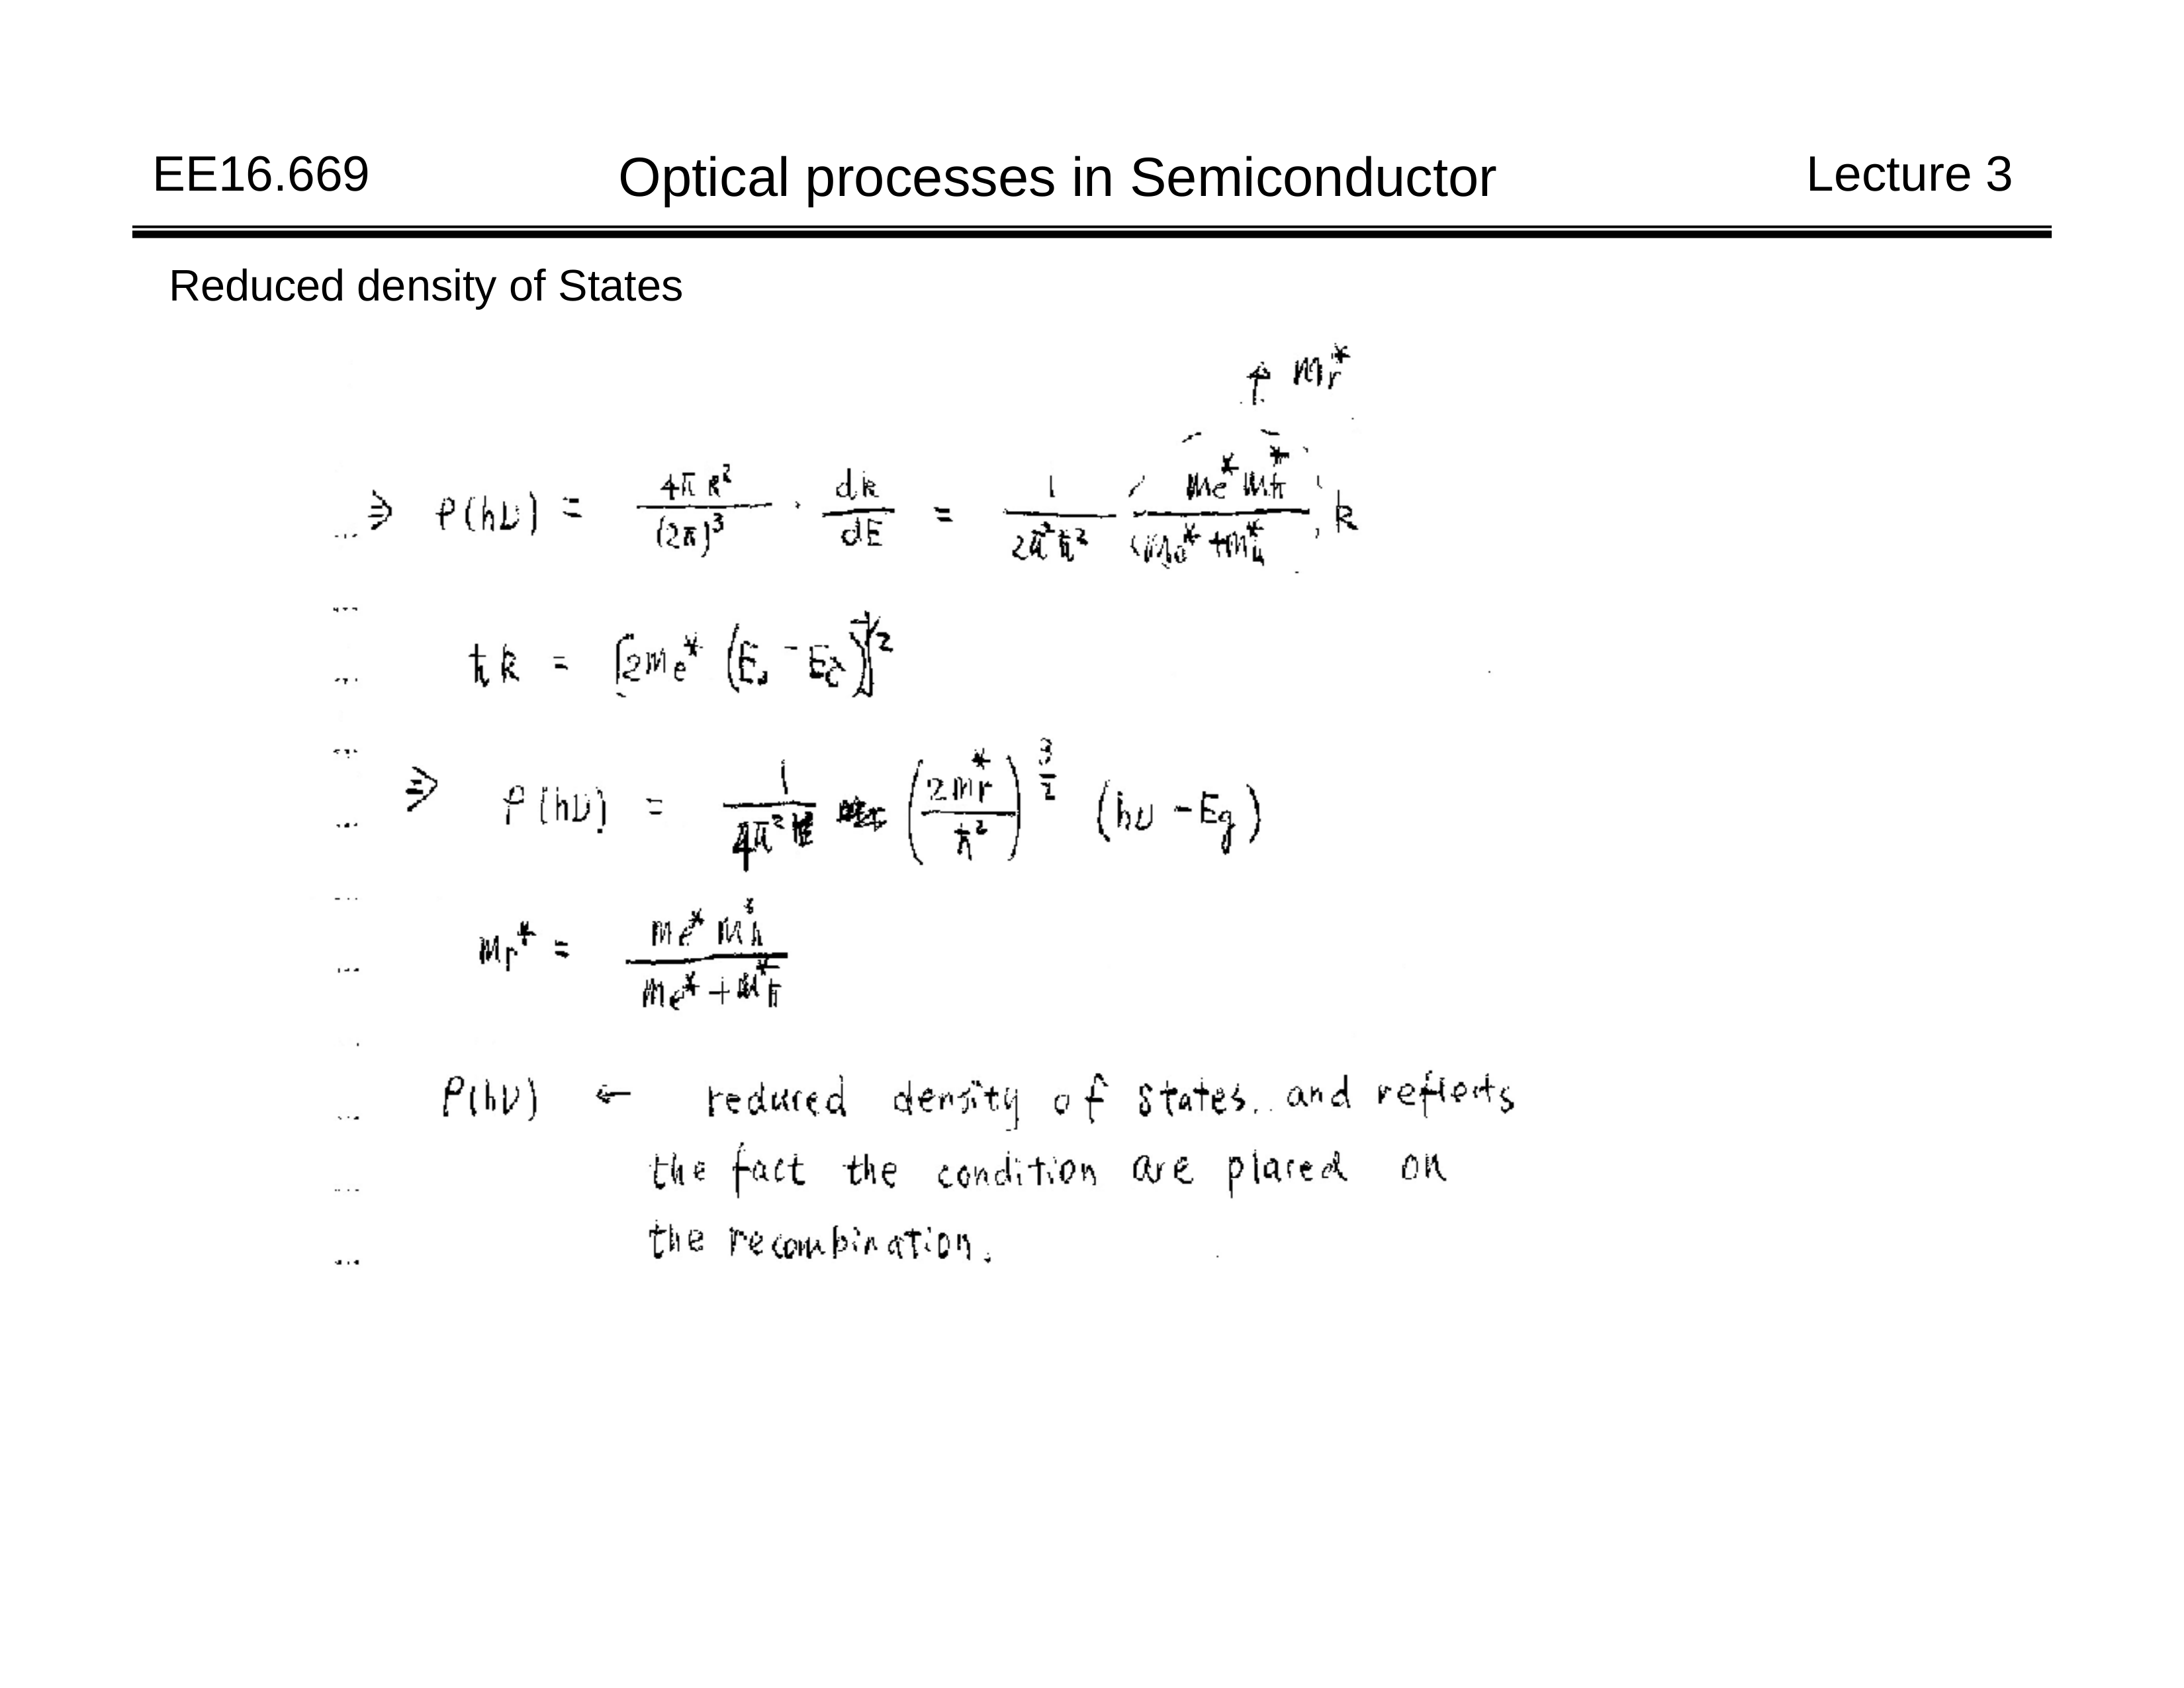 EE16.669 Optical processes in Semiconductor Lecture 3
Reduced density of States
↑ mr*
⇒ ρ(hν) = 4πk²/(2π)³ · dk/dE = 1/(2π²ħ²) (me* mh*)/(me* + mh*) k
ħk = [2me* (E - Ec)]^1/2
⇒ ρ(hν) = 1/(4π²) (2mr*/ħ²)^3/2 (hν - Eg)
mr* = (me* mh*)/(me* + mh*)
ρ(hν) ← reduced density of states. and reflects
the fact the condition are placed on
the recombination.